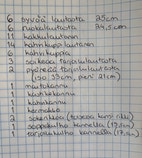 6 syvää lautasta 23cm
6 ruokalautasta 24,5cm
11 kakkulautanen
14 kahvikuppilautanen
11 kahvikuppia
3 soikeaa tarjoilulautasta
2 pyöreää tarjoilulautasta
(iso 33cm, pieni 21cm)
1 maitokannu
1 kastikekannu
1 kahvikannu
1 kermakko
2 sokerikko (toisessa kansi rikki)
1 soppakulho kannella (19,5cm)
1 tarjoilukulho kannella (17,5cm)